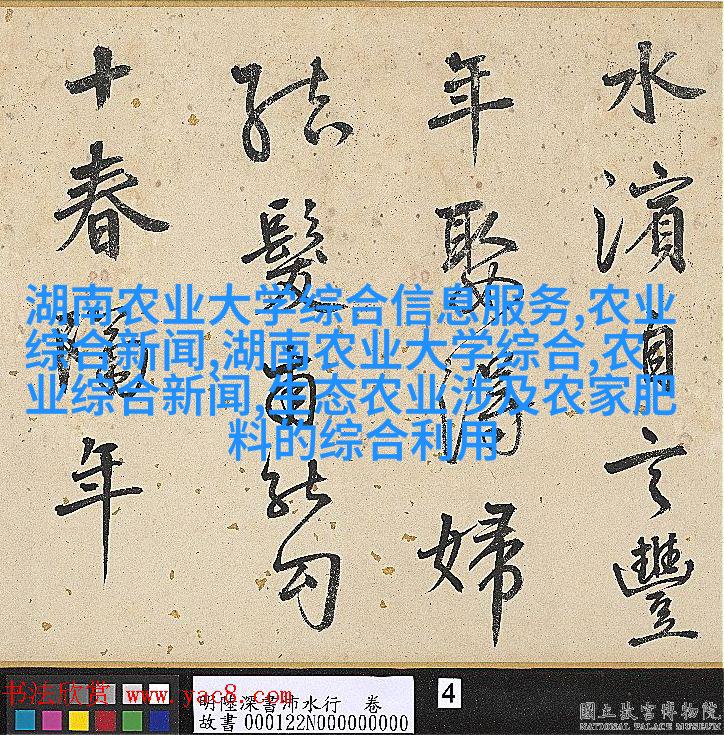 水濱自言豐
年娶婦
結髮甫能勾
十春年
湖南农业大学综合信息服务,农业
综合新闻,湖南农业大学综合,农
业综合新闻,生态农业涉及农家肥
料的综合利用
书法欣赏 www.yac8.com
明陸深書沛水行 卷
故書000122N000000000
4
國立故宮博物院
NATIONAL PALACE MUSEUM